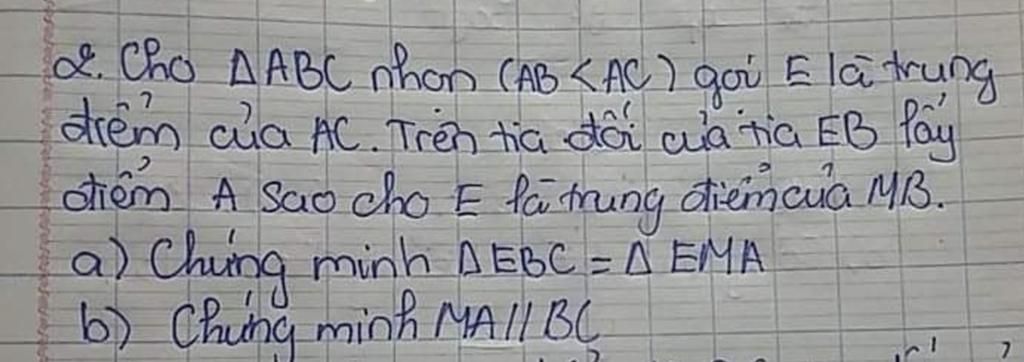 2. Cho ΔABC nhọn (AB < AC) gọi E là trung
điểm của AC. Trên tia đối của tia EB lấy
điểm A sao cho E là trung điểm của MB.
a) Chứng minh ΔEBC = Δ EMA
b) Chứng minh MA // BC